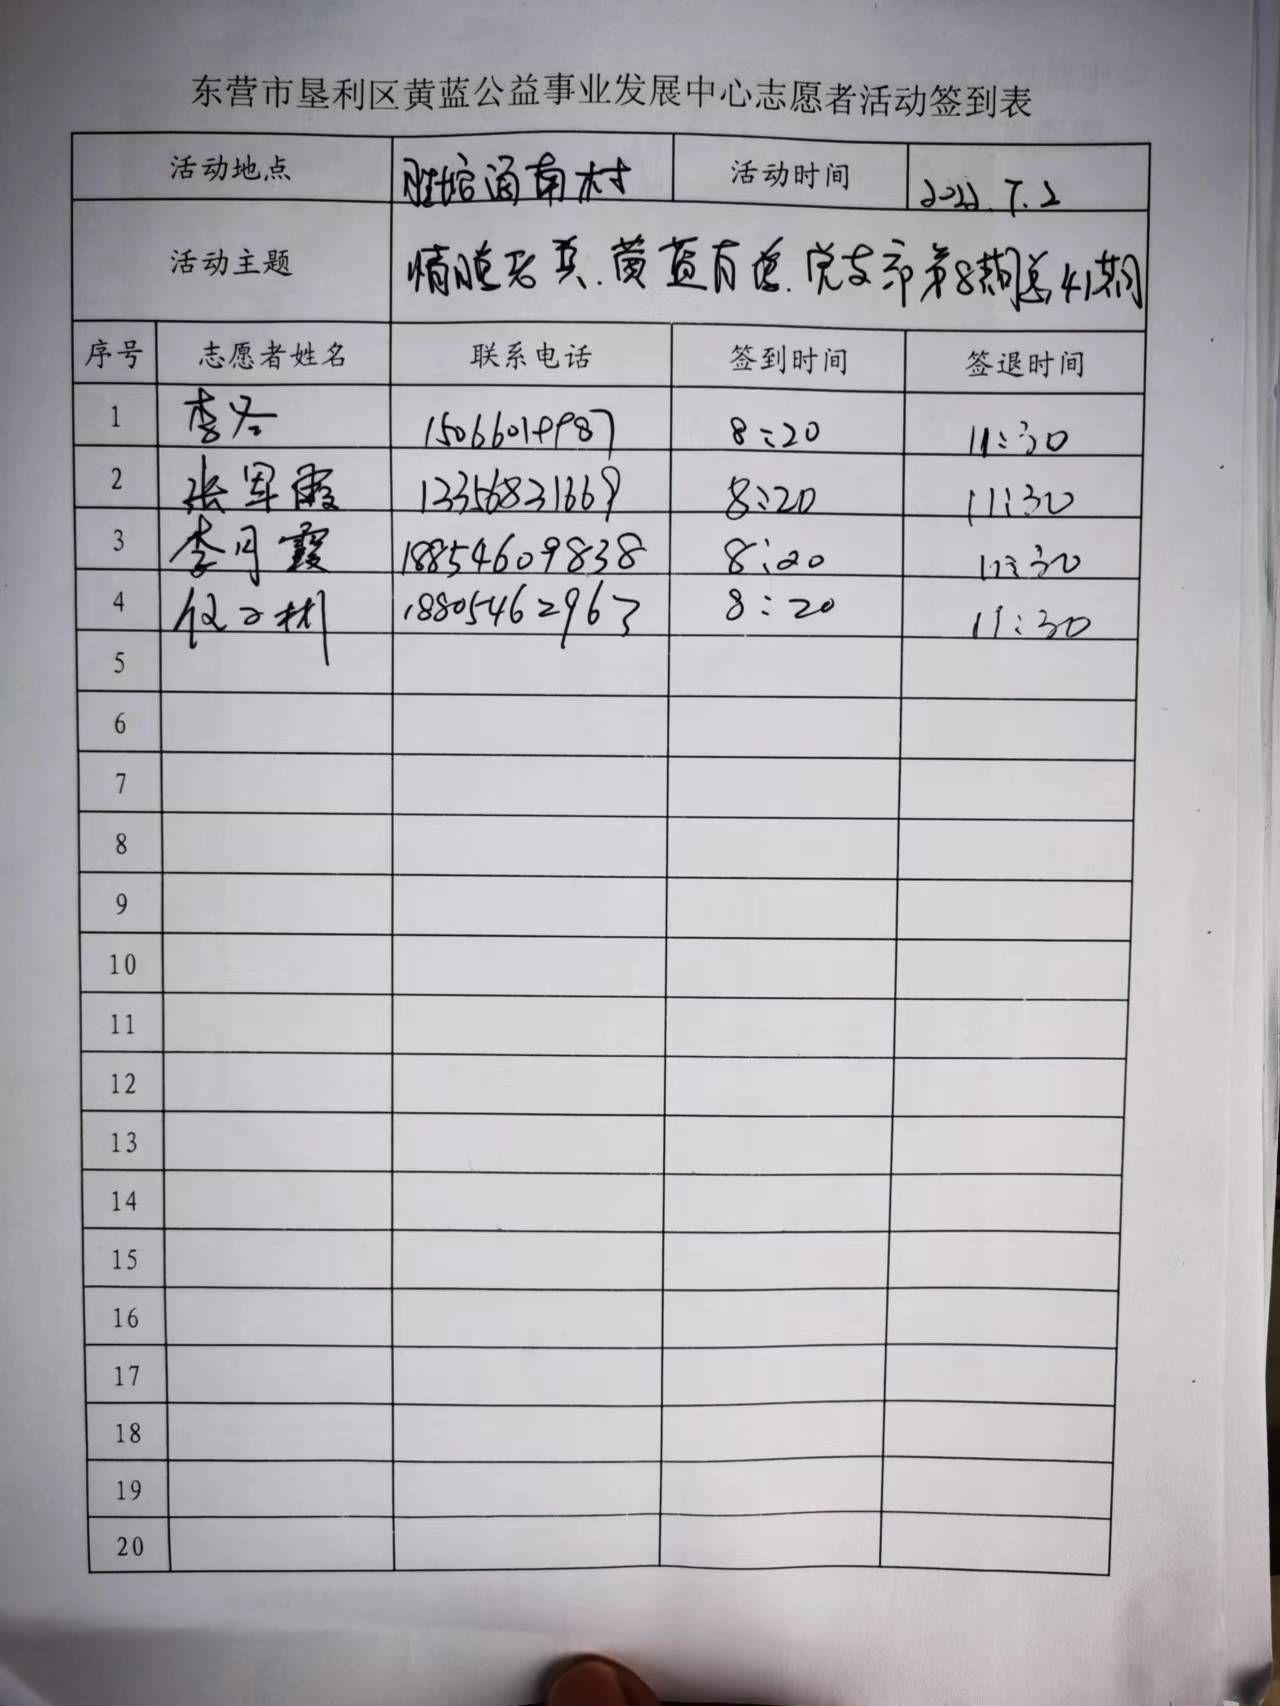 东营市垦利区黄蓝公益事业发展中心志愿者活动签到表
活动地点 胜坨海南村 活动时间 2022.7.2
活动主题 情暖老兵.黄蓝有爱.党支部第8期总41期
序号 志愿者姓名 联系电话 签到时间 签退时间
1 李冬 8:20 11:30
2 张军霞 13356831669 8:20 11:30
3 李月霞 18854609838 8:20 11:30
4 18805462963 8:20 11:30
5
6
7
8
9
10
11
12
13
14
15
16
17
18
19
20